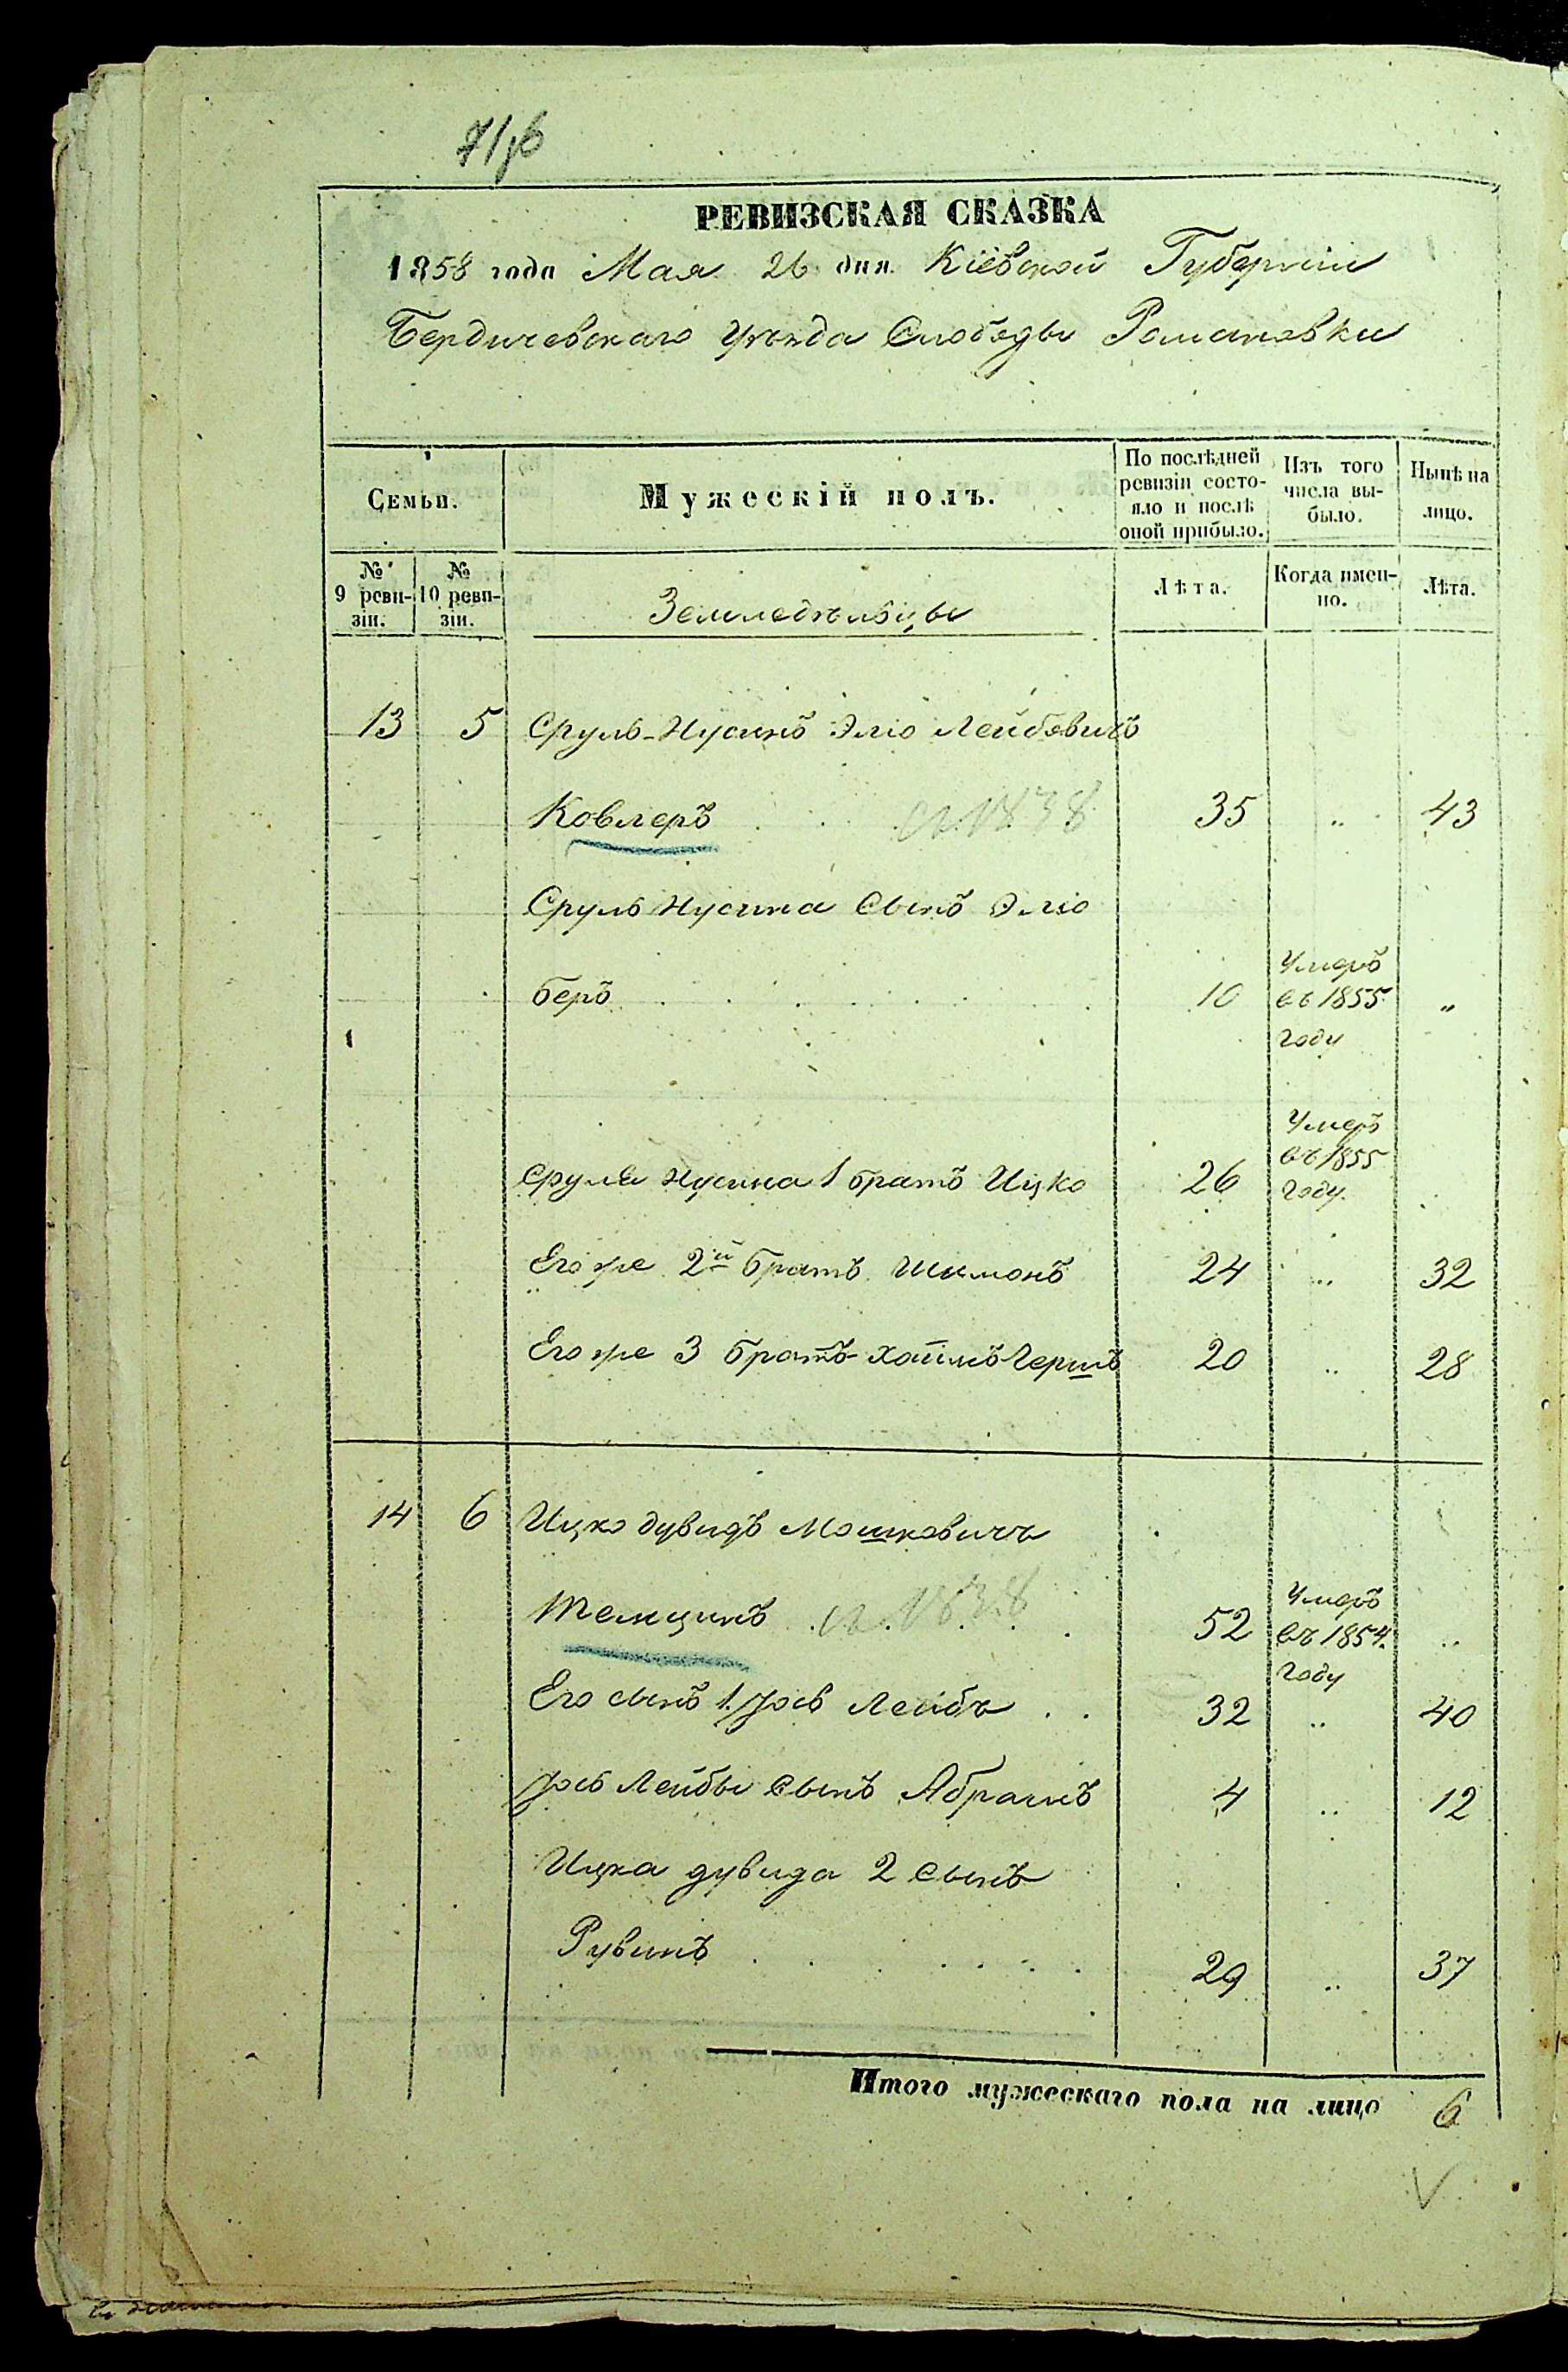 РЕВИЗСКАЯ СКАЗКА
1858 года Мая 26 дня Кіевской Губерніи
Бердичевскаго Уѣзда Слободы Романовки
Семьи.
Мужескій полъ.
По послѣдней ревизіи состояло и послѣ оной прибыло.
Изъ того числа выбыло.
Нынѣ на лицо.
№ 9 ревизіи.
№ 10 ревизіи.
Земледѣльцы
Лѣта.
Когда именно.
Лѣта.
13 5 Сруль-Нусинъ Эліо Лейбовичъ
Ковлеръ с 1838 35 „ 43
Сруль Нусина Сынъ Эліо
Беръ 10 Умеръ въ 1855 году „
Сруля Нусина 1 братъ Ицко 26 Умеръ въ 1855 году.
Его же 2й братъ Шимонъ 24 „ 32
Его же 3 братъ Хаимъ Гершъ 20 „ 28
14 6 Ицко дувидъ Мошковичъ
с 1838 52 Умеръ въ 1854 году „
Его сынъ 1. Іось Лейбъ 32 „ 40
Іось Лейбы Сынъ Абрамъ 4 „ 12
Ицка дувида 2 сынъ
Рувинъ 29 „ 37
Итого мужескаго пола на лицо 6